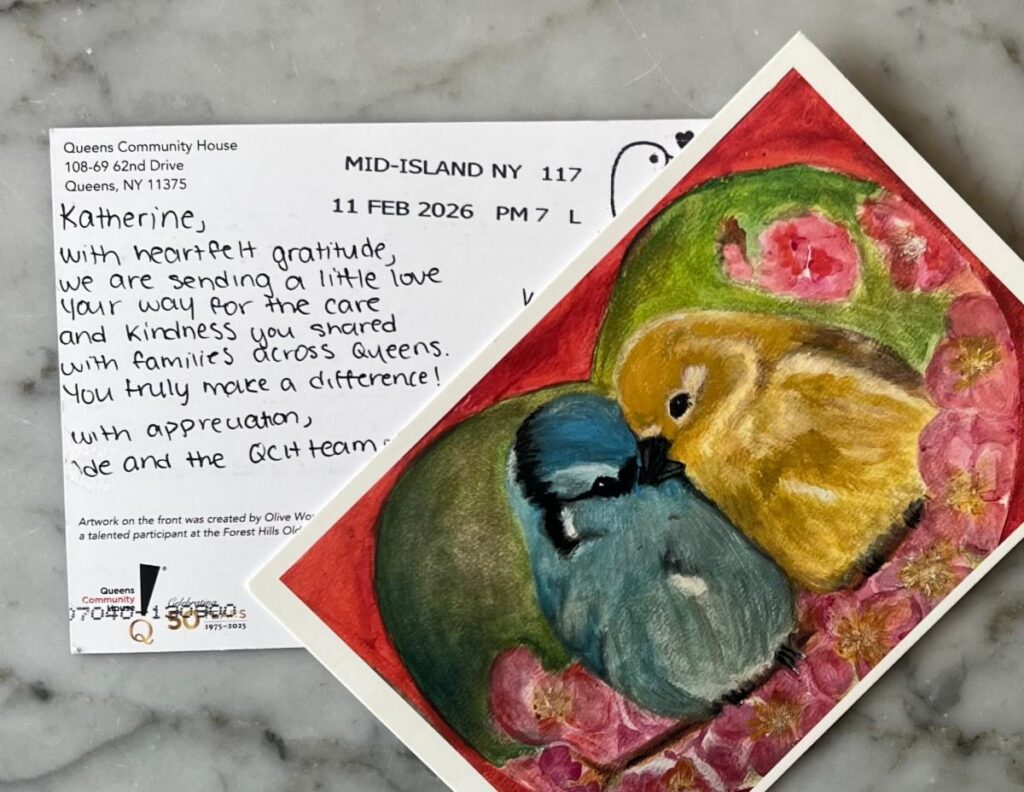 Queens Community House
108-69 62nd Drive
Queens, NY 11375
MID-ISLAND NY 117
11 FEB 2026 PM 7 L
Katherine,
with heartfelt gratitude,
we are sending a little love
your way for the care
and kindness you shared
with families across Queens.
You truly make a difference!
with appreciation,
and the QCH team
Artwork on the front was created by Olive
a talented participant at the Forest Hills
Queens
Community
House
Celebrating
50 YEARS
1975-2025